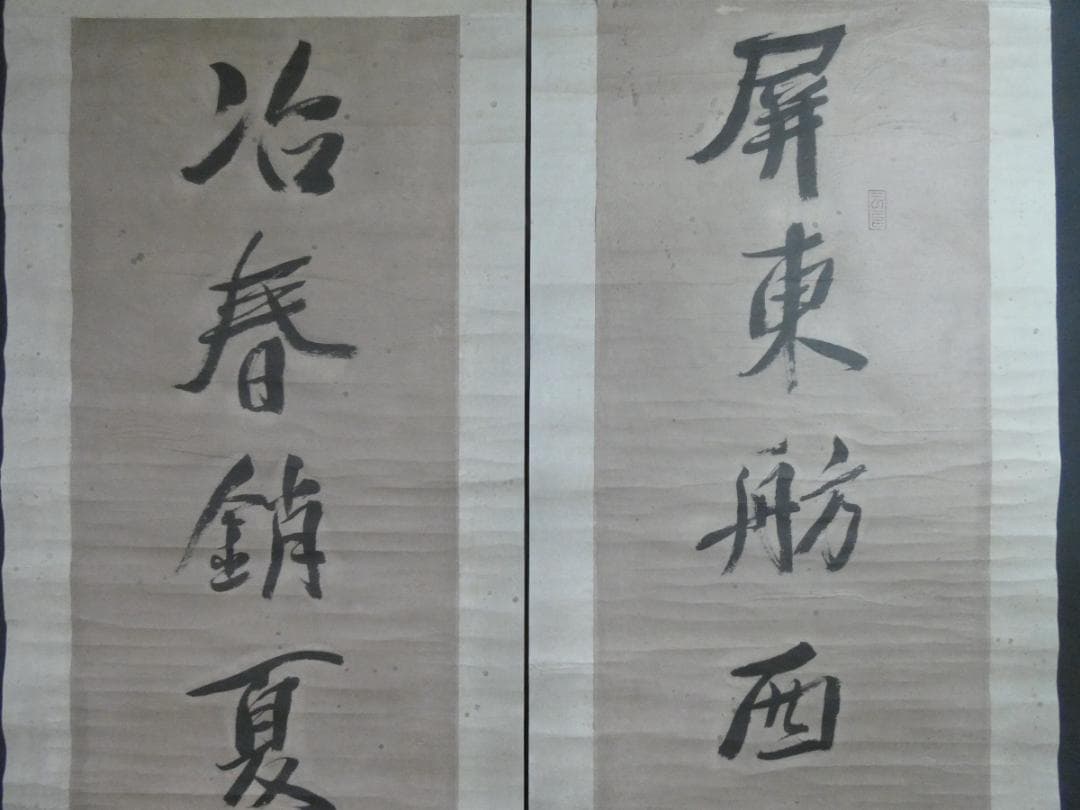 屏東舫西
冶春銷夏